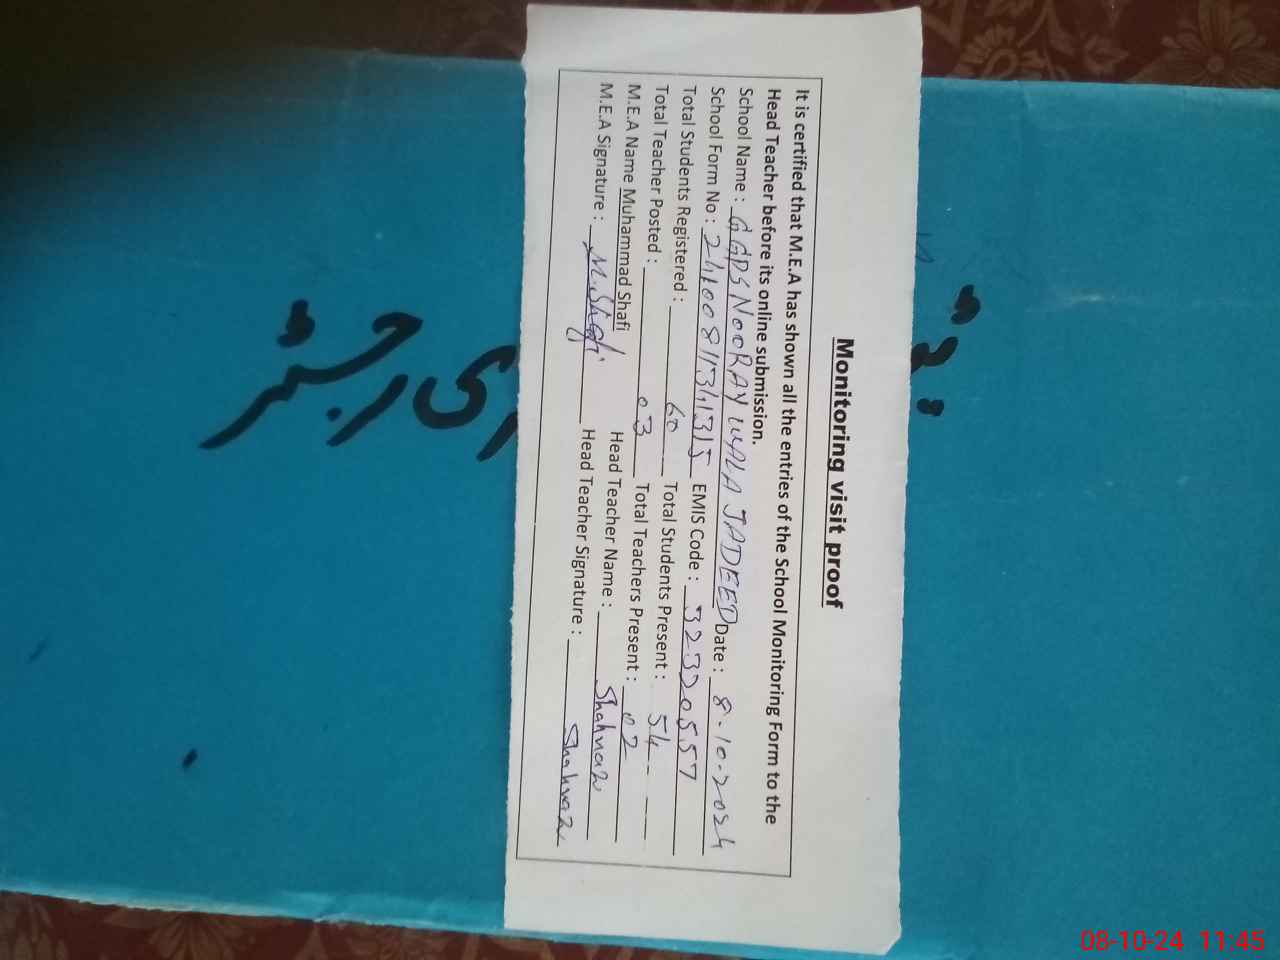 Monitoring visit proof
It is certified that M.E.A has shown all the entries of the School Monitoring Form to the
Head Teacher before its online submission.
School Name : GGPS NOORAY WALA JADEED Date : 8-10-2024
School Form No : EMIS Code : 32320557
Total Students Registered : 60 Total Students Present : 54
Total Teacher Posted : 03 Total Teachers Present : 02
M.E.A Name Muhammad Shafi Head Teacher Name : Shahnaz
M.E.A Signature : M.Shafi Head Teacher Signature : Shahnaz
08-10-24 11:45